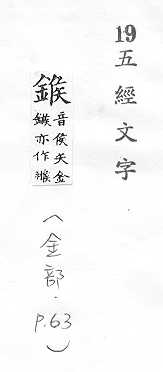 19五經文字
鍭
音侯矢金
鏃亦作猴
(金部·
P.63)